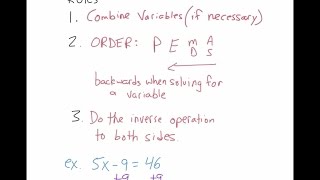 Rules
1. Combine Variables (if necessary)
2. ORDER: P E M A
D S
backwards when solving for
a variable
3. Do the inverse operation
to both sides.
ex. 5x - 9 = 46
+9 +9